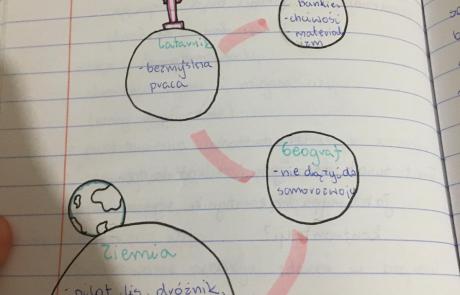 bankier
- chciwość
materiali
zm
Latarnik
- bezmyślna
praca
Geograf
- nie dąży do
samorozwoju
Ziemia
- pilot, lis, dróżnik,